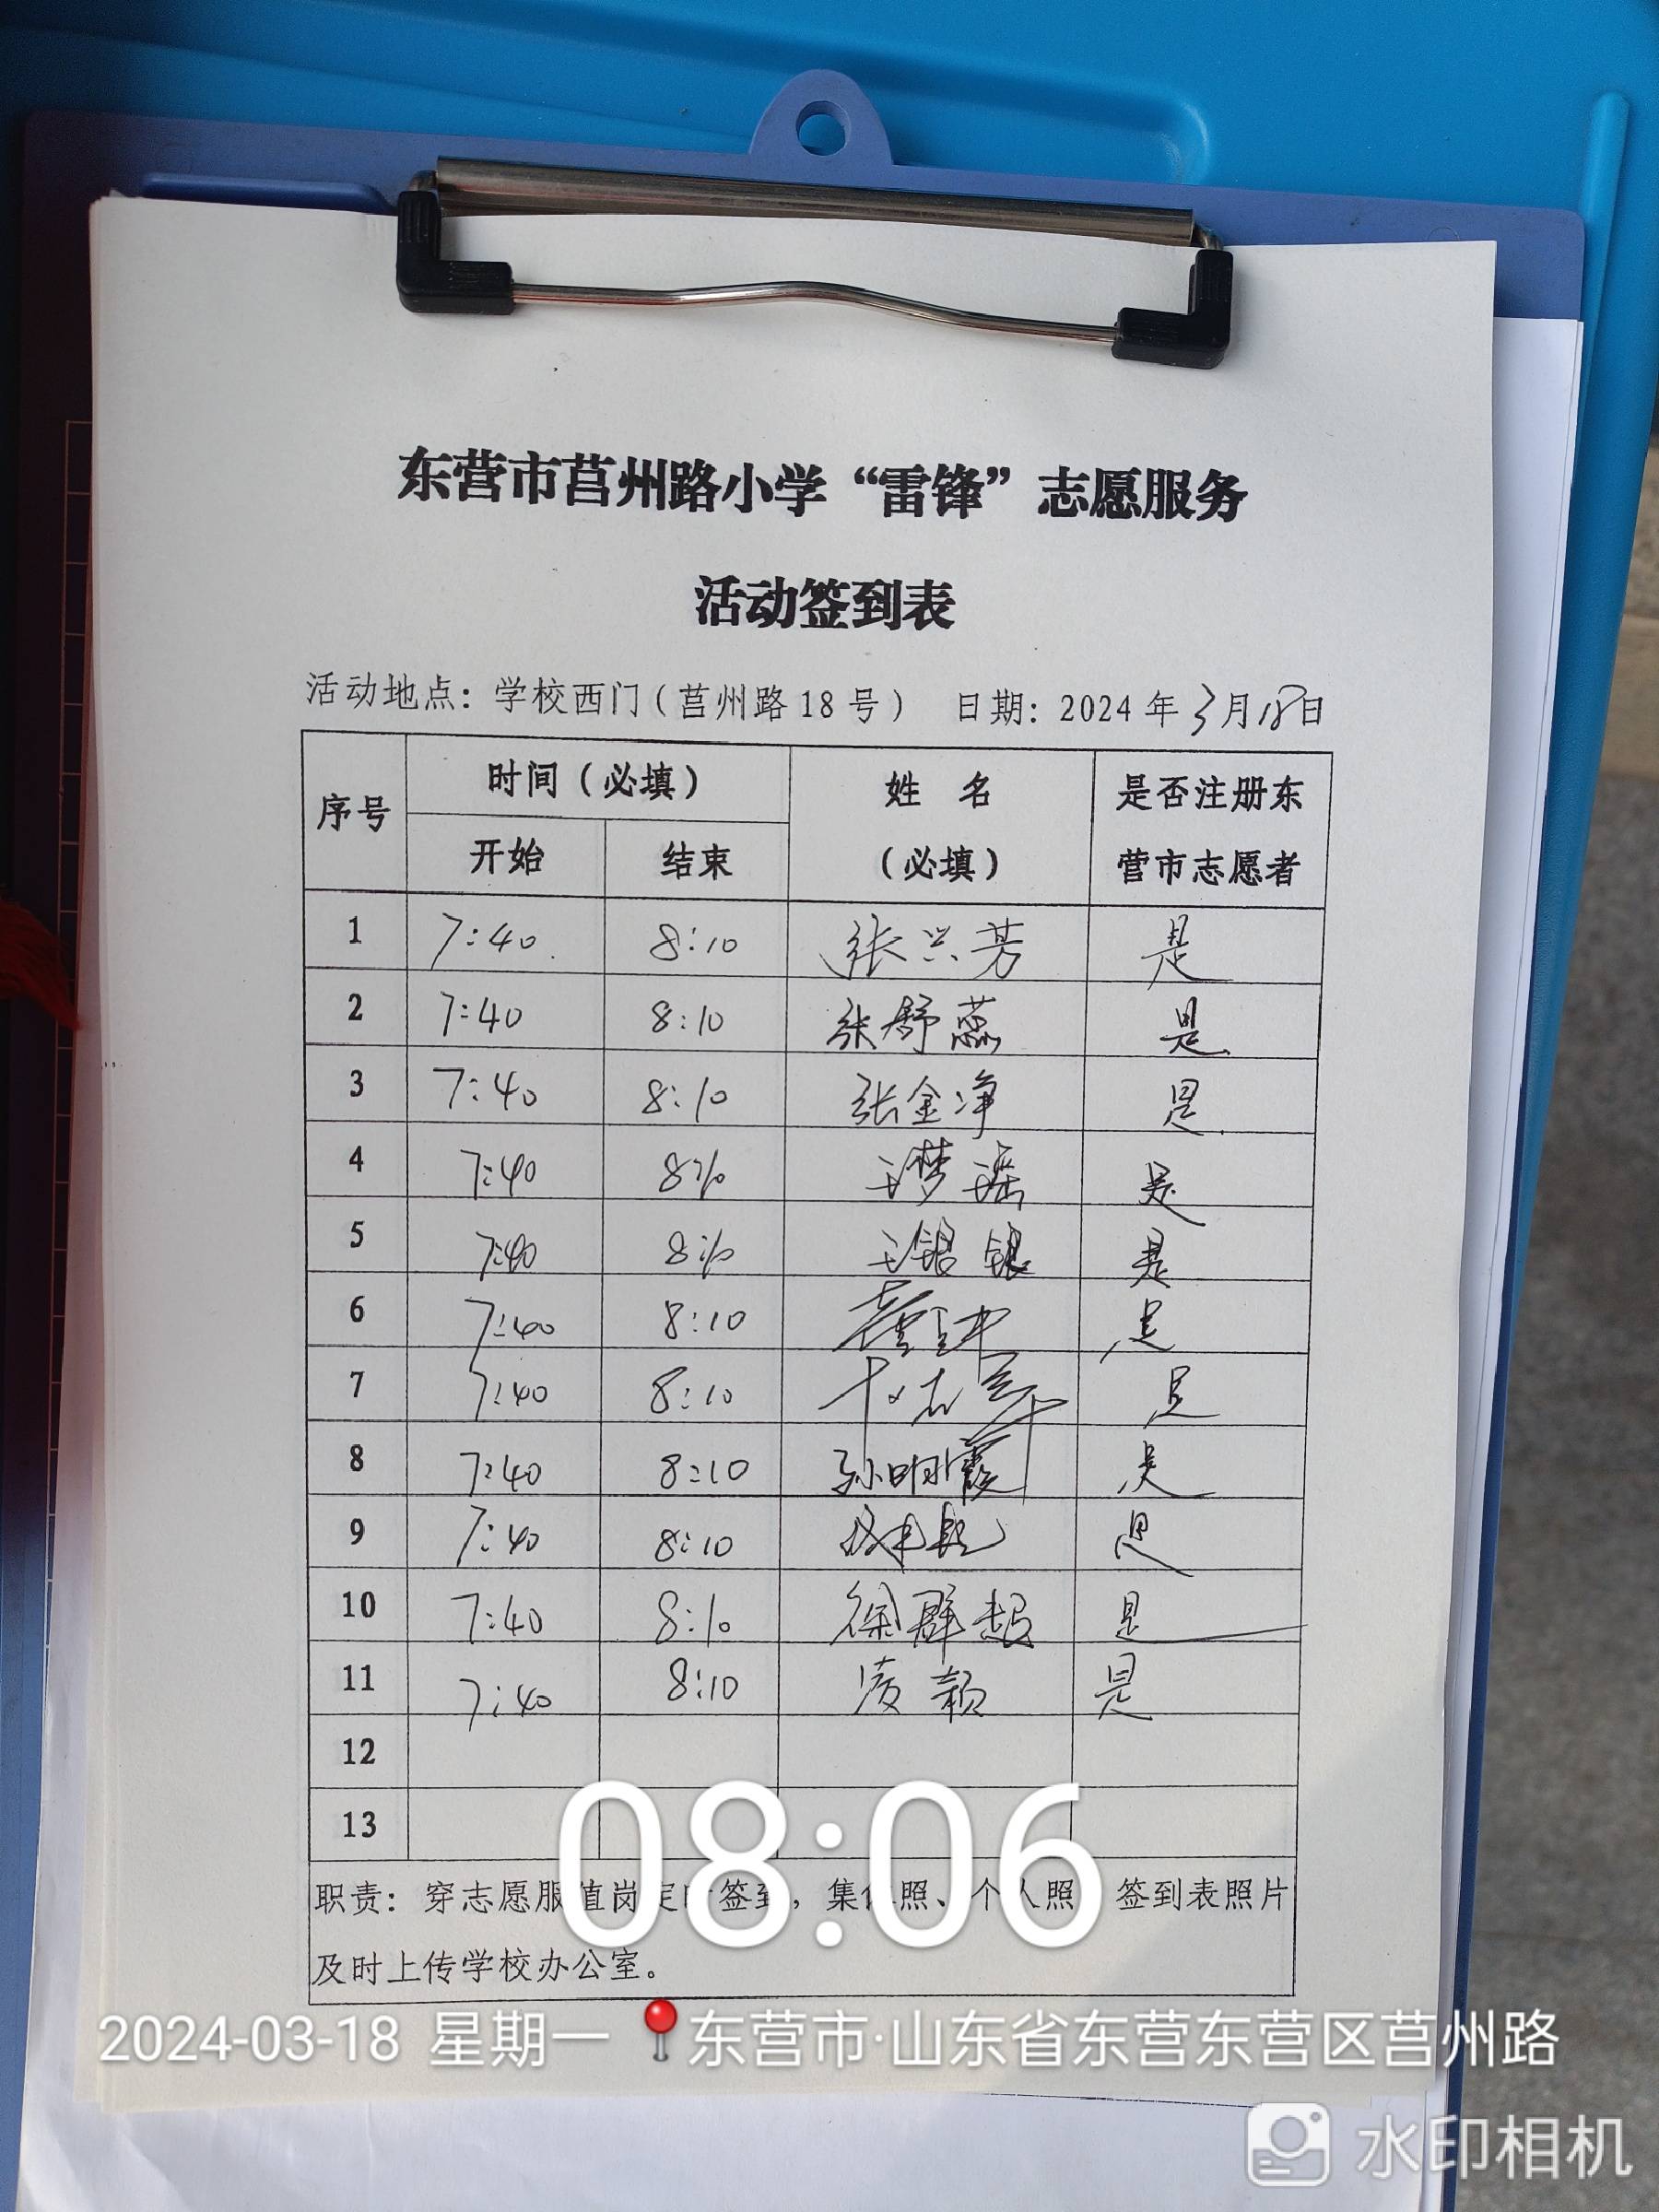 东营市莒州路小学“雷锋”志愿服务
活动签到表
活动地点：学校西门（莒州路18号） 日期：2024年3月18日
序号 时间（必填） 姓 名 是否注册东
开始 结束 （必填） 营市志愿者
1 7:40 8:10 张兴芳 是
2 7:40 8:10 张舒蕊 是
3 7:40 8:10 张金净 是
4 7:40 8:10 王梦瑶 是
5 7:40 8:10 王银银 是
6 7:40 8:10 是
7 7:40 8:10 是
8 7:40 8:10 孙明霞 是
9 7:40 8:10 是
10 7:40 8:10 徐群超 是
11 7:40 8:10 凌颖 是
12
13
08:06
职责：穿志愿服值岗定时签到，集体照、个人照 签到表照片
及时上传学校办公室。
2024-03-18 星期一 东营市·山东省东营东营区莒州路
水印相机